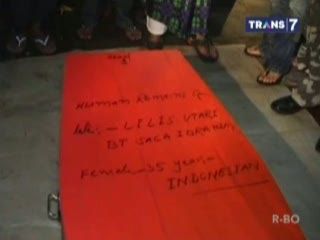 TRANS 7
Human Remains of
late:- LILIS UTARI
BT SACA IBRAHIM
Female - 35 years -
INDONESIAN
R-BO